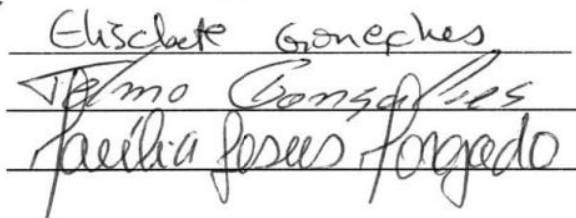 Elisabete Gonçalves
Telmo Gonçalves
Jesus Morgado